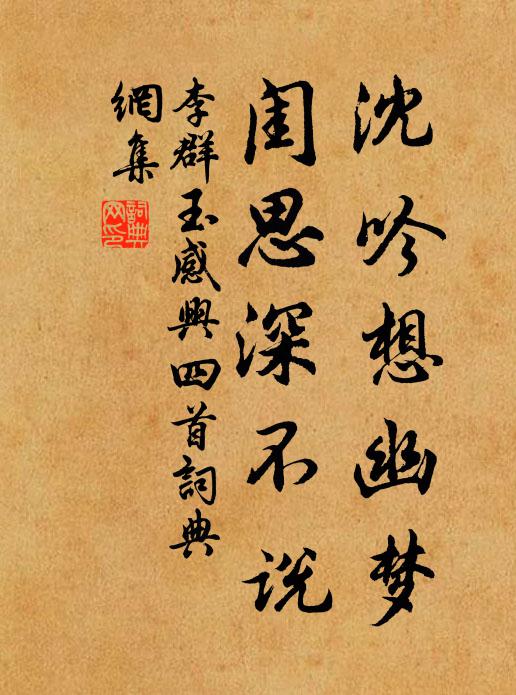 沈吟想幽梦
闺思深不说
李群玉感興四首詞典
網集
詞典
网印